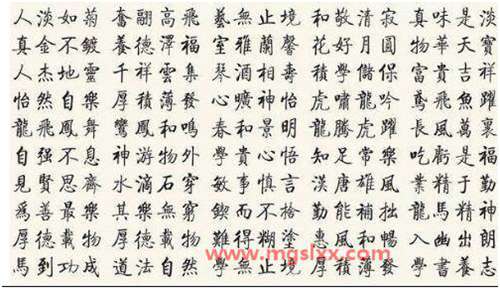 人淡如菊 奮翩高飛 藝無止境 和敬清寂 真味是淡
真金不鍍 養德澤福 室雅蘭馨 花好月圓 物華天寶
人杰地靈 千祥雲集 琴酒相壽 積學儲保 富貴吉祥
怡然自樂 厚積薄發 心曠神怡 虎嘯龍吟 鳶飛魚躍
龍飛鳳舞 鸞鳳和鳴 春和景明 龍騰虎躍 長風萬裏
自强不息 神游物外 學貴心悟 知足常樂 吃虧是福
見賢思齊 水滴石穿 敏事慎言 漢唐雄風 業精于勤
爲善最樂 其樂無窮 鍥而不捨 勤能補拙 龍馬精神
厚德載物 厚德 難得糊塗 惠風和暢 入幽出朗
馬到功成 道法自然 學無止境 厚積薄發 學書養志
www.mgslxx.com